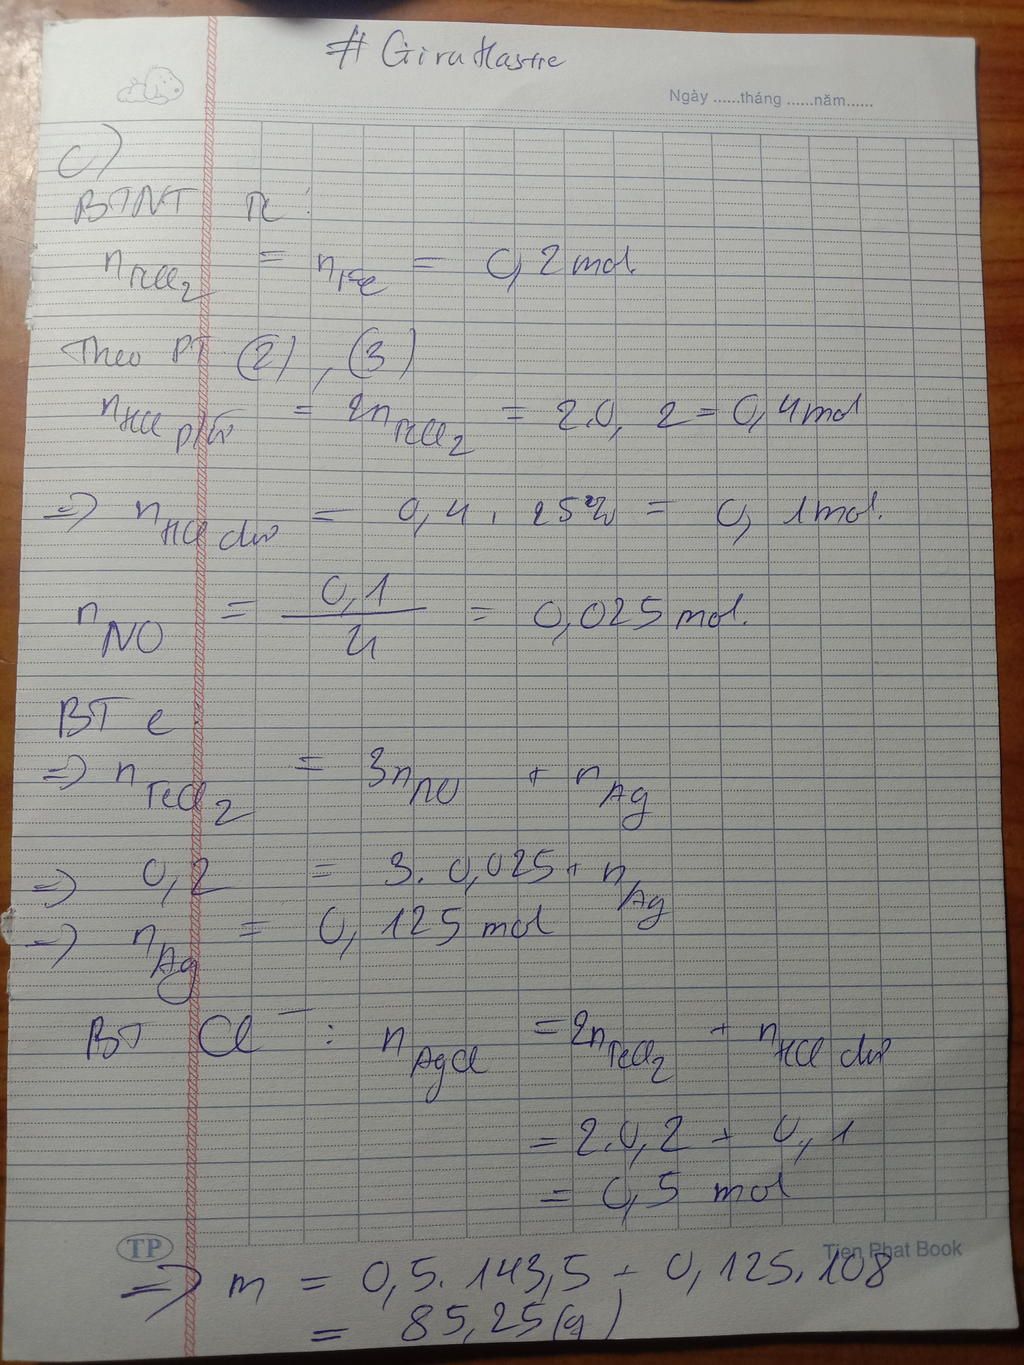 # GiruHastie
Ngày ......tháng ......năm......
c)
BTNT Fe :
nFeCl2 = nFe = 0,2 mol
Theo PT (2) , (3)
nHCl p/ư = 2nFeCl2 = 2.0,2 = 0,4 mol
=> nHCl dư = 0,4 . 25% = 0,1 mol.
nNO = 0,1/4 = 0,025 mol.
BT e
=> nFeCl2 = 3nNO + nAg
=> 0,2 = 3. 0,025 + nAg
=> nAg = 0,125 mol
BT Cl⁻ : nAgCl = 2nFeCl2 + nHCl dư
= 2.0,2 + 0,1
= 0,5 mol
TP
Tien Phat Book
=> m = 0,5. 143,5 + 0,125.108
= 85,25(g)